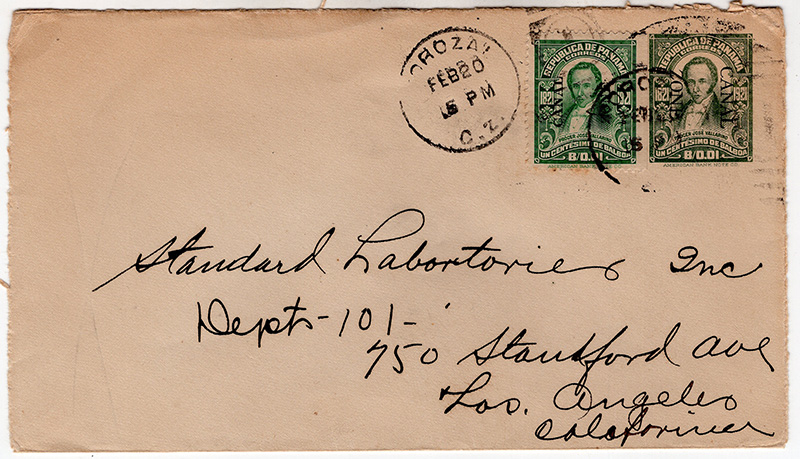 COROZAL
FEB 20
5 PM
C. Z.
REPUBLICA DE PANAMA
CORREOS
1821 1921
CANAL
PROCER JOSE VALLARINO
UN CENTÉSIMO DE BALBOA
B/0.01
REPUBLICA DE PANAMA
CORREOS
1821 1921
CANAL
ZONE
PROCER JOSE VALLARINO
UN CENTÉSIMO DE BALBOA
B/0.01
AMERICAN BANK NOTE CO.
Standard Labortories Inc
Depts-101-
750 Standford Ave
Los. Angeles
California